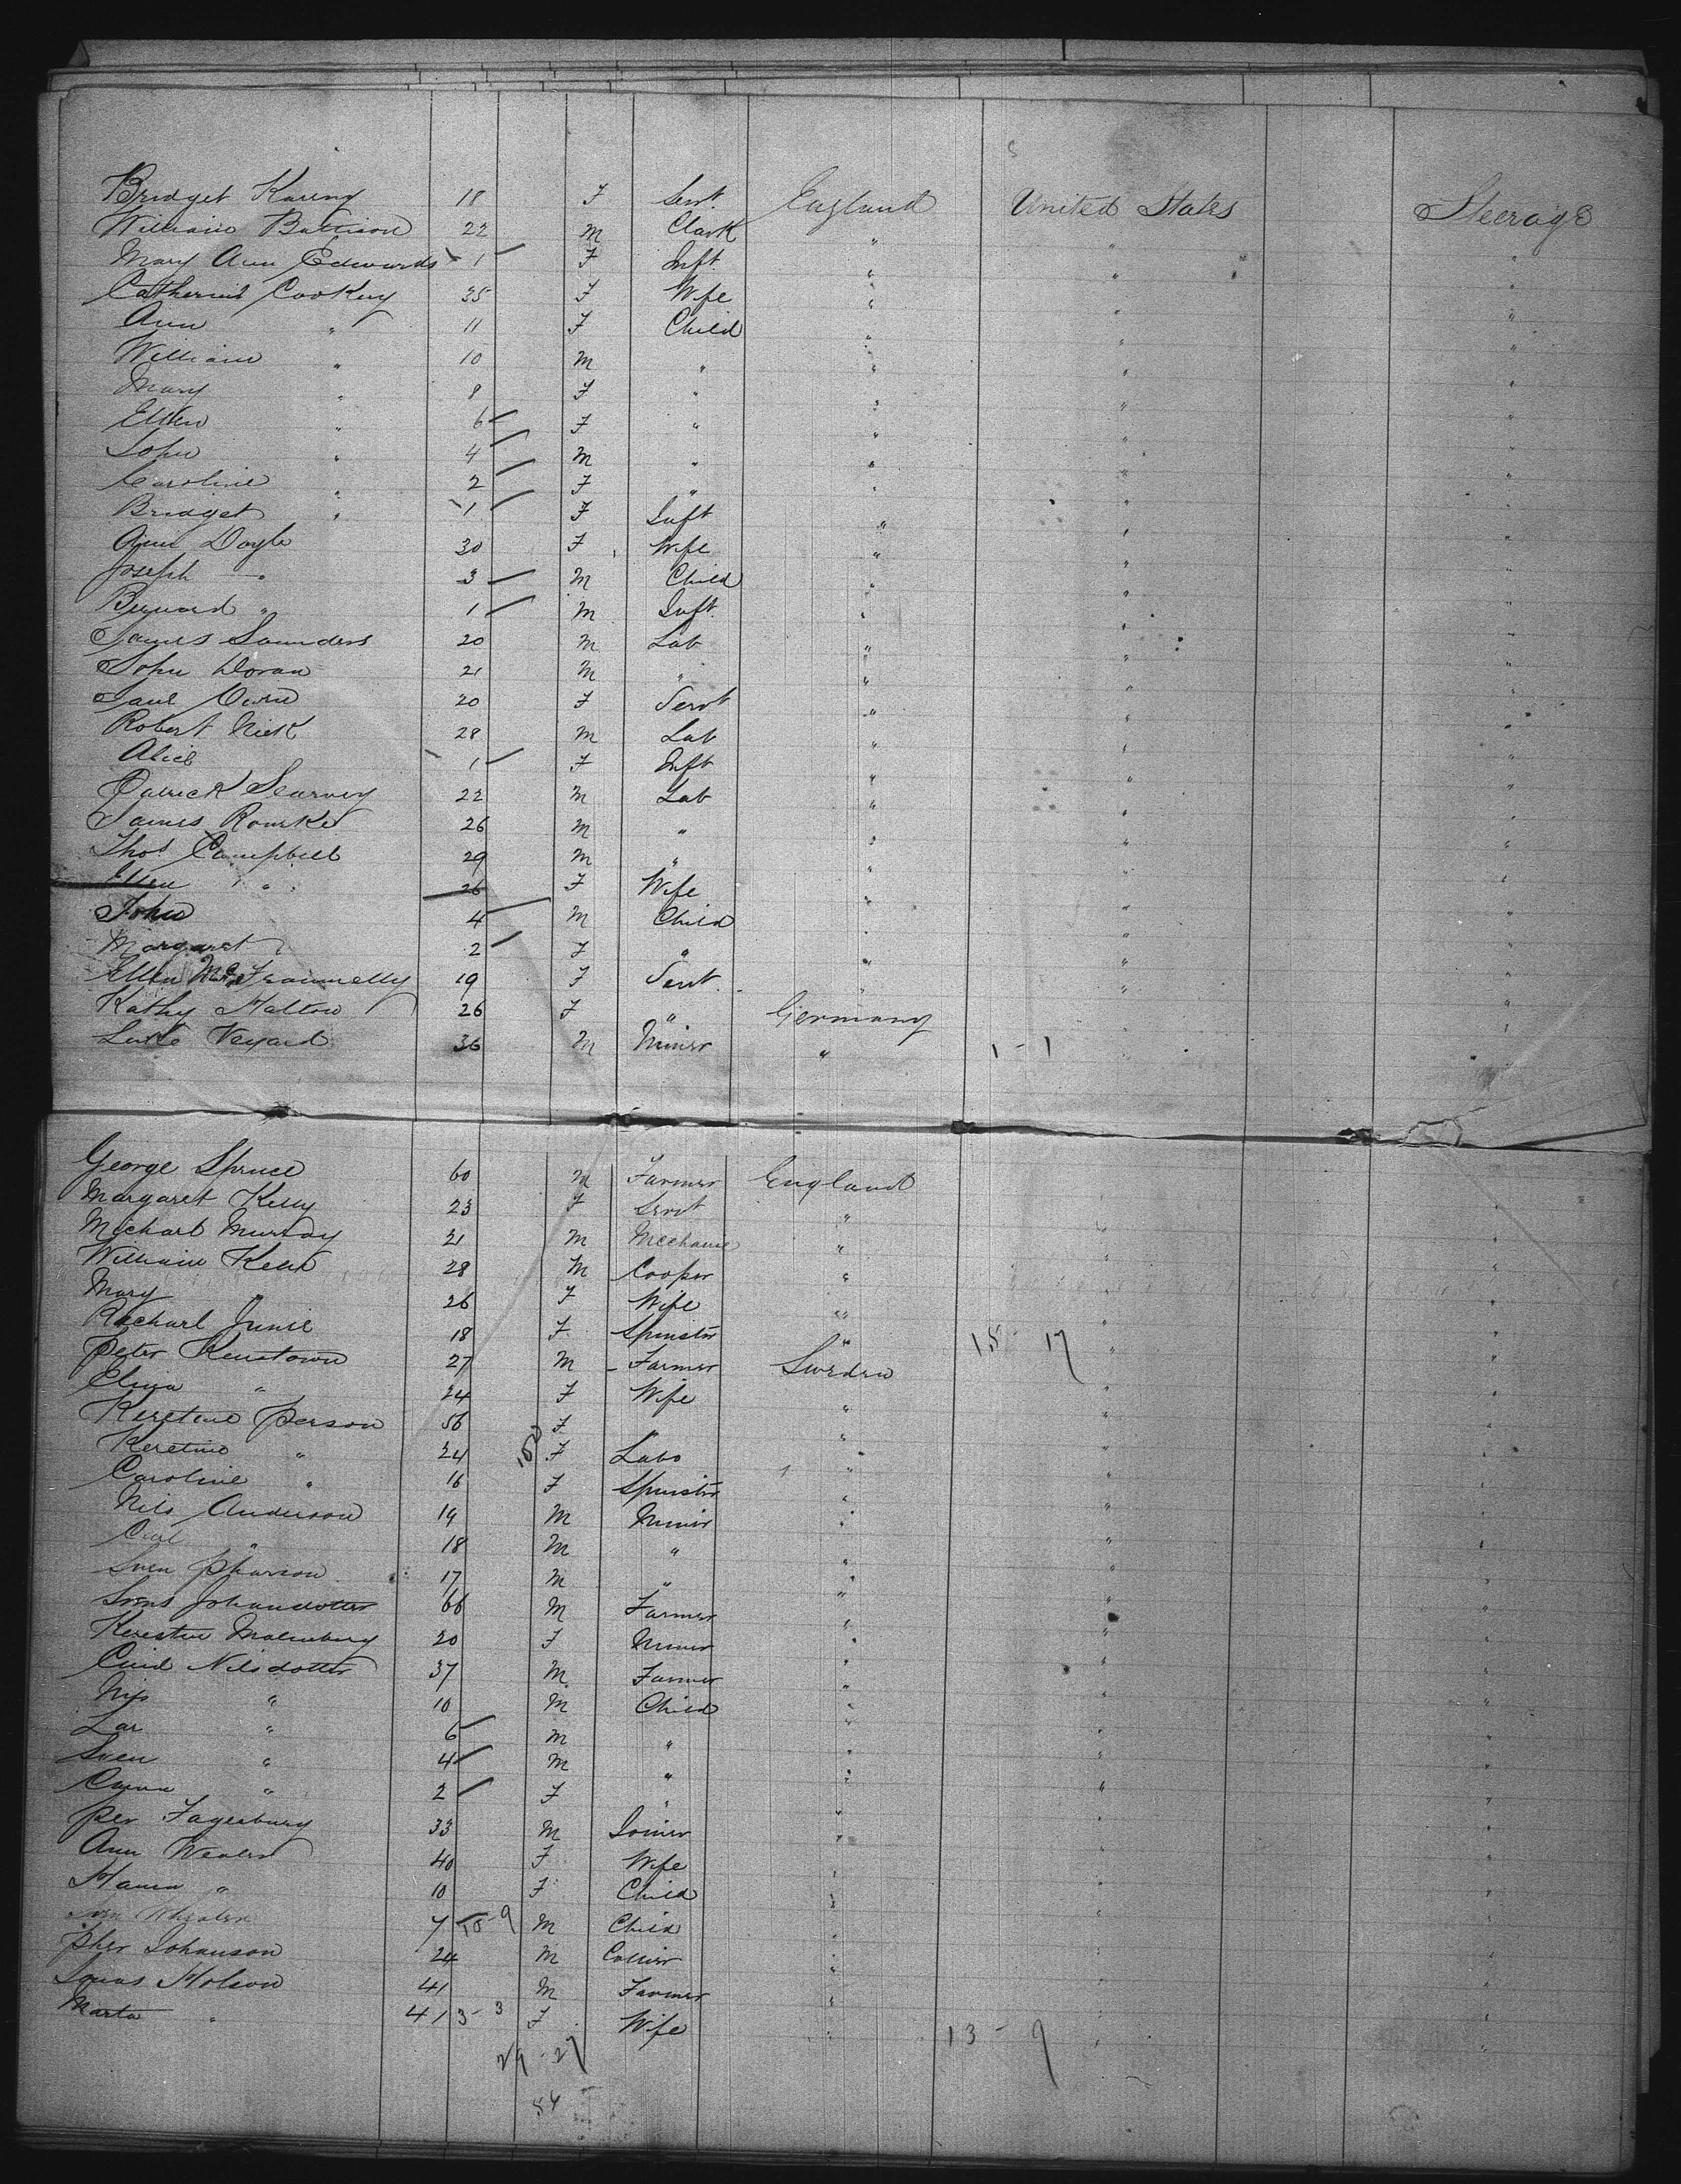 Bridget Kareny 18 F Servt England United States Steerage
William Battison 22 M Clark " " "
Mary Ann Edwards 1 F Inft " " "
Catherine Cookey 35 F Wife " " "
Ann " 11 F Child " " "
William " 10 M " " " "
Mary " 8 F " " " "
Ellen " 6 F " " " "
John " 4 M " " " "
Caroline " 2 F " " " "
Bridget " 1 F Inft " " "
Ann Doyle 30 F Wife " " "
Joseph " 3 M Child " " "
Bernard " 1 M Inft " " "
James Saunders 20 M Lab " " "
John Doran 21 M " " " "
Jane 20 F Servt " " "
Robert Nick 28 M Lab " " "
Alice 1 F Inft " " "
Patrick Scurvey 22 M Lab " " "
James Rourke 26 M " " " "
Thos Campbell 29 M " " " "
Ellen " 26 F Wife " " "
John 4 M Child " " "
Margaret 2 F " " " "
Ellen Mc 19 F Servt " " "
Kathy Halton 26 F " Germany "
36 M Miner " 1-1 "
George Spruce 60 M Farmer England
Margaret Kelly 23 F Servt " "
Michael Murray 21 M Mechanic " " "
William Kent 28 M Cooper " "
Mary " 26 F Wife " " "
Rachael 18 F Spinster " 15 17 " "
Peter Kenstown 27 M Farmer Sweden " "
" 24 F Wife " " "
Keretine Person 56 F " " "
Keretine " 24 F Labo " " "
Caroline " 16 F Spinster " "
Nils Anderson 19 M Minor " " "
Carl " 18 M " " "
Sven 17 M " " " "
Johansdotter 66 M Farmer " " "
Kerestin Malmburg 20 F Miner " " "
Nilsdotter 37 M Farmer " "
" 10 M Child " " "
Lar " 6 M " " "
Sven " 4 M " " " "
" 2 F " " " "
Per Fagerburg 33 M Joiner " " "
Ann 40 F Wife " "
" 10 F Child " " "
7 15-9 M Child " "
Pher Johanson 24 M Collier " "
41 M Farmer " "
Marta " 41 3-3 F Wife " 13-9 " "
27-27
54